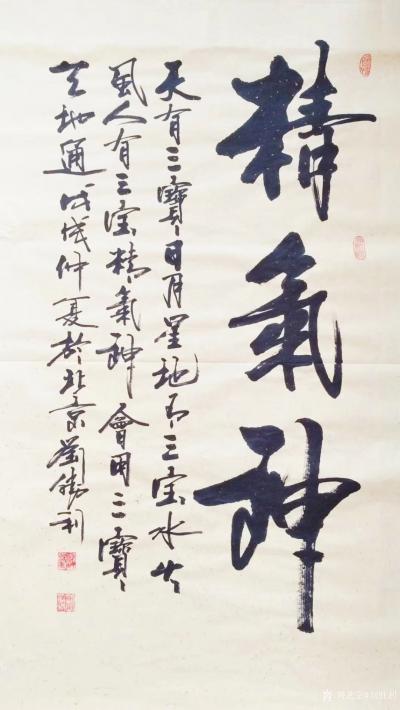 精氣神
天有三寶日月星地有三宝水火
風人有三宝精氣神會用三寶
天地通戊戌仲夏於北京劉勝利